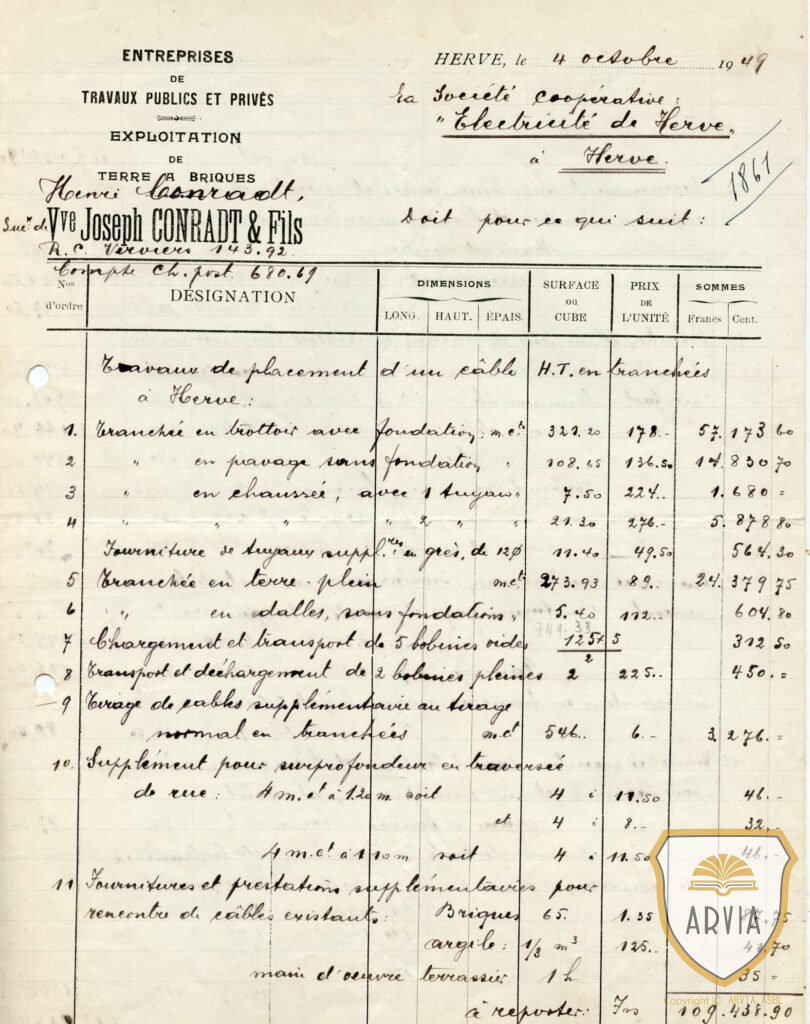 ENTREPRISES
DE
TRAVAUX PUBLICS ET PRIVÉS
EXPLOITATION
DE
TERRE A BRIQUES
Henri Conradt,
Suc.r de Vve Joseph CONRADT & Fils
R.C. Verviers 143.92.
Compte Ch. post. 680.69
HERVE, le 4 octobre 1949
La Société Coopérative :
"Electricité de Herve"
à Herve.
1861
Doit pour ce qui suit :
Nos d'ordre DÉSIGNATION DIMENSIONS SURFACE ou CUBE PRIX DE L'UNITÉ SOMMES
LONG. HAUT. ÉPAIS. Francs Cent.
Travaux de placement d'un câble H.T. en tranchées
à Herve :
1. Tranchée en trottoir avec fondation : m.ct. 321.20 178.- 57.173 60
2 " en pavage sans fondation " 108.65 136.50 14.830 70
3 " en chaussée, avec 1 tuyau " 7.50 224.. 1.680 =
4 " " " " 2 " " 21.30 276.- 5.878 80
Fourniture de tuyaux suppl.res en grès, de 120 11.40 49.50 564.30
5 Tranchée en terre-plein m.ct. 273.93 89.. 24.379 75
6 " en dalles, sans fondations " 5.40 112.. 604.80
7 Chargement et transport de 5 bobines vides 125x5 312 50
2
8 Transport et déchargement de 2 bobines pleines 2 225.. 450.=
9 Tirage de cables supplémentaire au tirage
normal en tranchées m.ct 546.. 6.- 3.276.=
10. Supplément pour surprofondeur en traversée
de rue : 4 m.ct à 1.20 m. soit 4 à 11.50 46.-
et 4 à 8.- 32.-
4 m.ct à 1.10 m. soit 4 à 11.50 46.-
11 Fournitures et prestations supplémentaires pour
rencontre de câbles existants : Briques 65. 1.35 87.75
argile : 1/3 m3 125.. 41.70
main d'oeuvre terrassier 1 h 35=
à reporter : Frs 109.438.90
ARVIA
Copyright © ARVIA ASBL